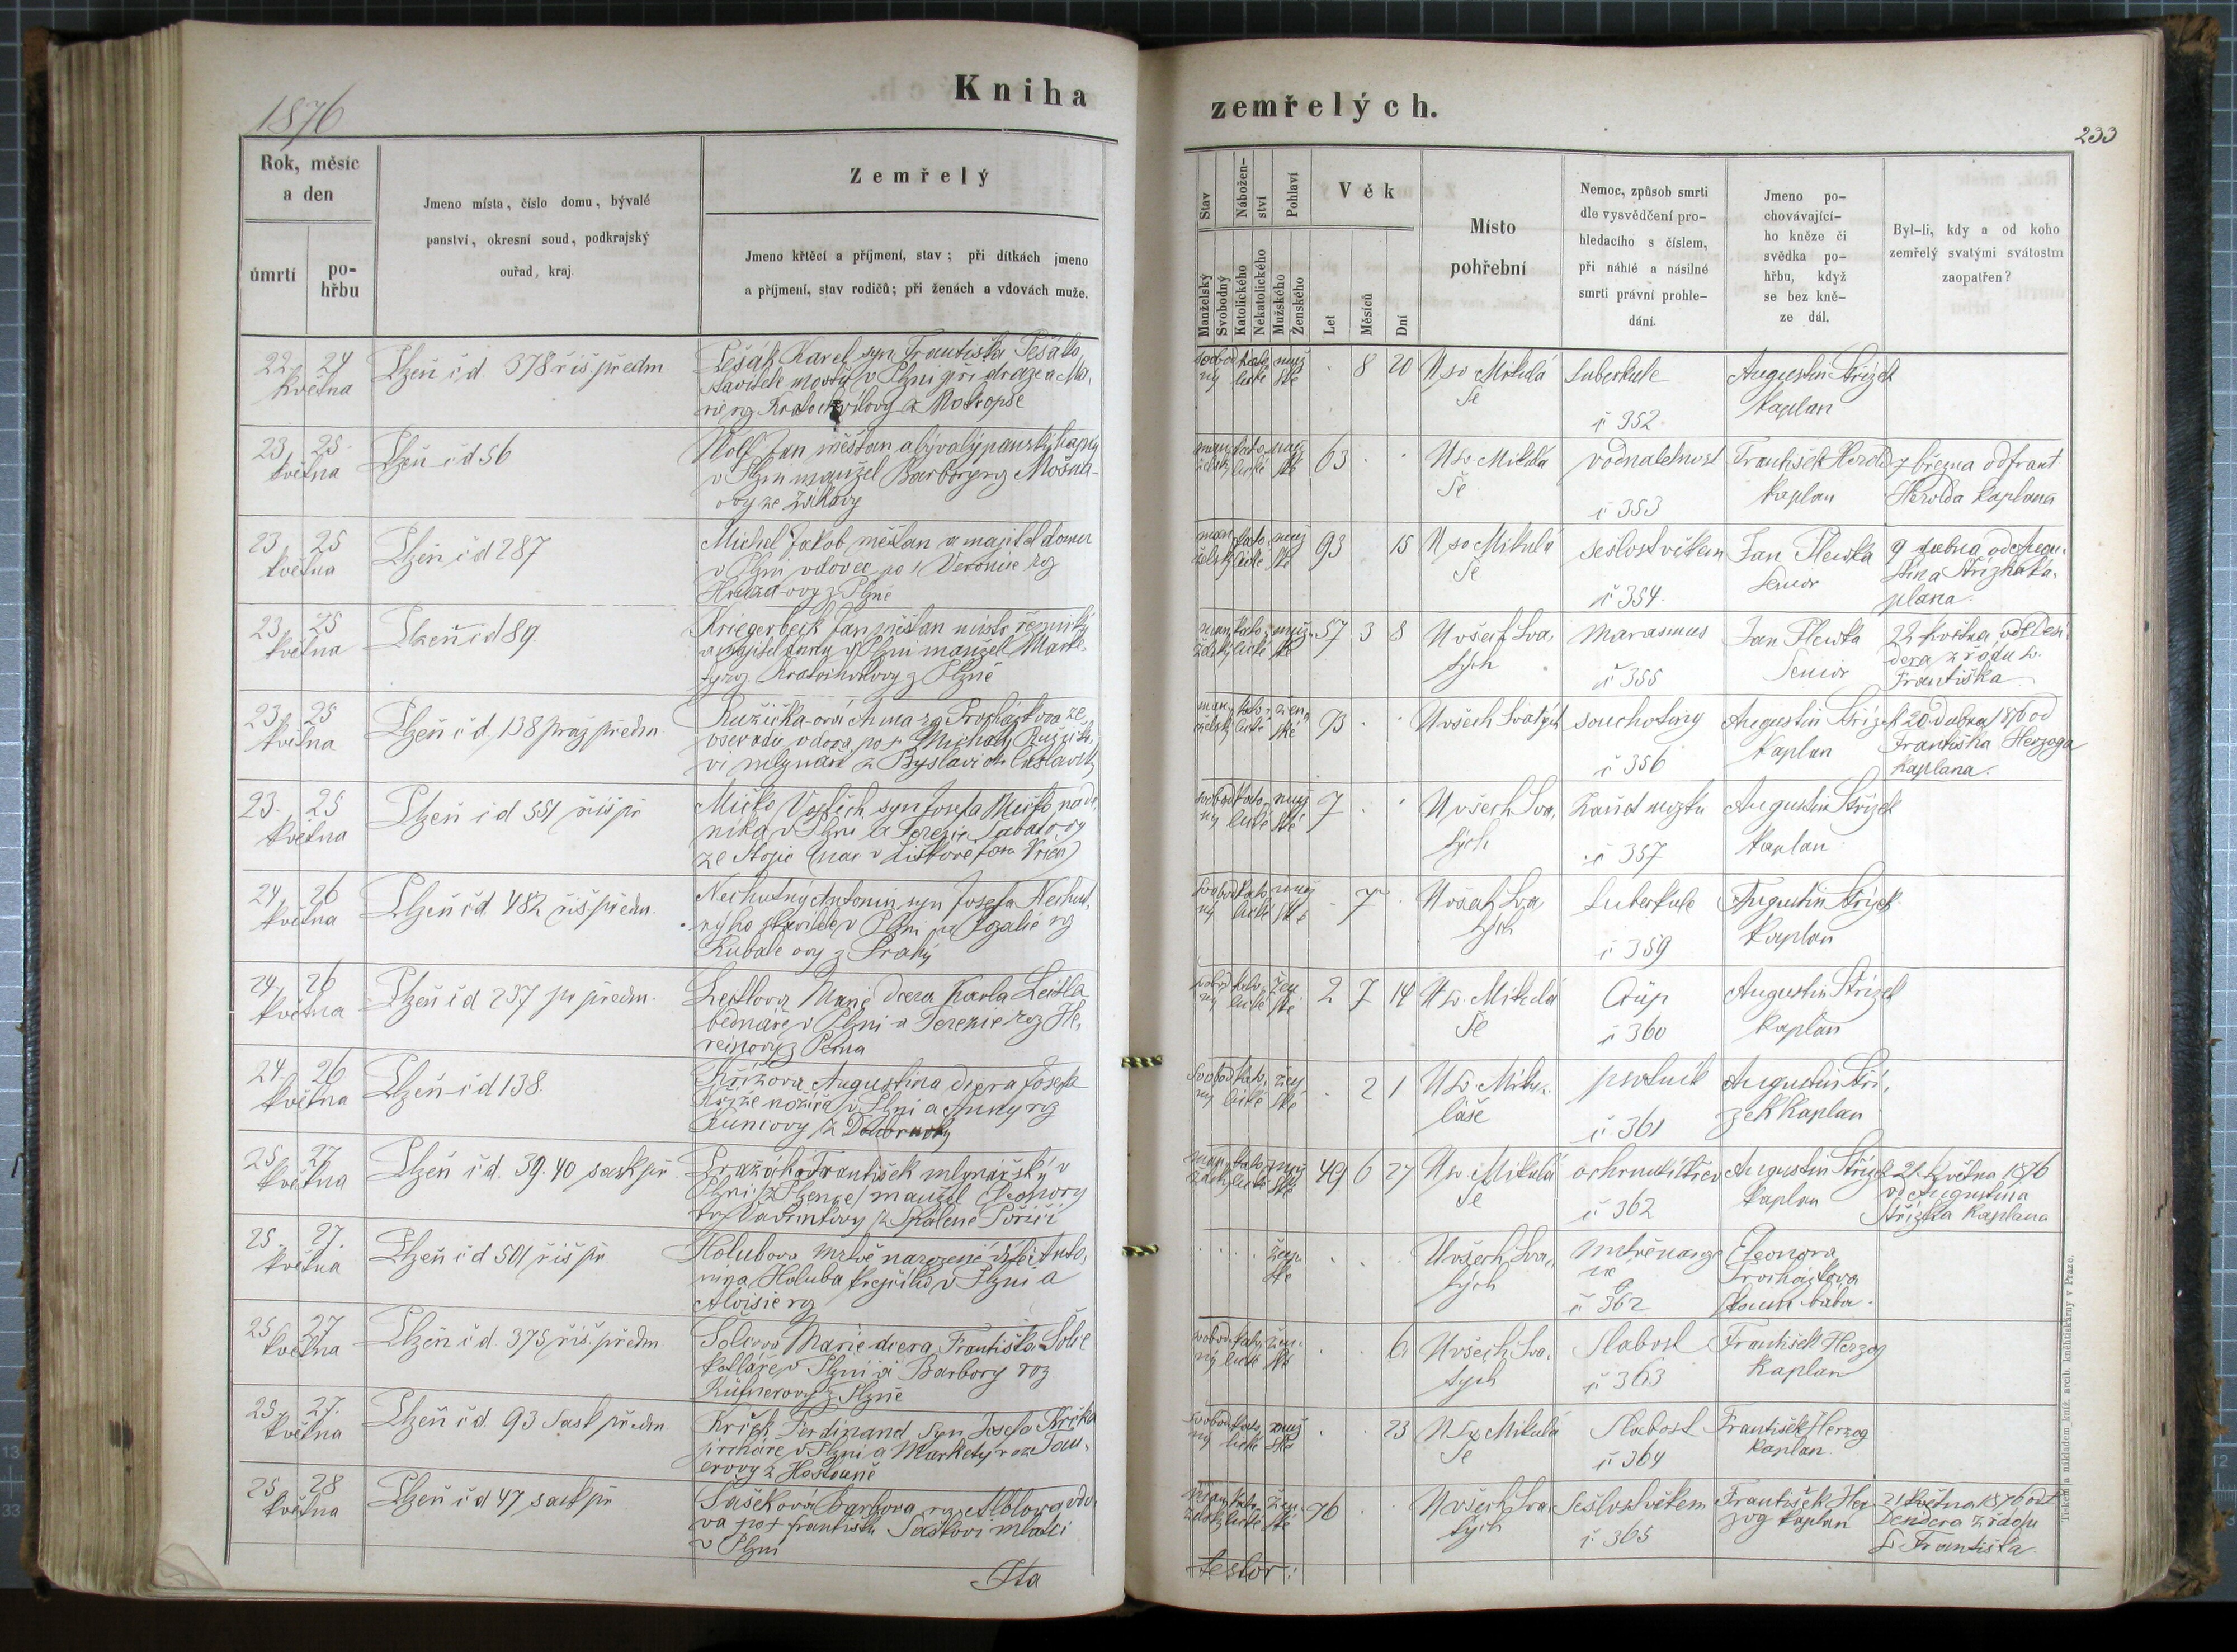 1876
Kniha
zemřelých.
233
Rok, měsíc
a den
úmrtí
po-
hřbu
Jmeno místa, číslo domu, bývalé
panství, okresní soud, podkrajský
ouřad, kraj.
Zemřelý
Jmeno křtěcí a příjmení, stav; při dítkách jmeno
a příjmení, stav rodičů; při ženách a vdovách muže.
Stav
Manželský
Svobodný
Nábožen-
ství
Katolického
Nekatolického
Pohlaví
Mužského
Ženského
Věk
Let
Měsíců
Dní
Místo
pohřební
Nemoc, způsob smrti
dle vysvědčení pro-
hledacího s číslem,
při náhlé a násilné
smrti právní prohle-
dání.
Jmeno po-
chovávající-
ho kněze či
svědka po-
hřbu, když
se bez kně-
ze dál.
Byl-li, kdy a od koho
zemřelý svatými svátostmi
zaopatřen?
22. 24
května
Plzeň čd. 378 říš. předm
Pešák Karel syn Františka Pešáka
stavitele mostů v Plzni při dráze a Ma,
rie rz Kratochvilovy z Mokropse
svobod
ný
kato
lické
muž
ské
8 20
U sv Mikulá
še
tuberkule
č 352
Augustin Střízek
kaplan
23. 25.
května
Plzeň čd 56
Wolf Jan měšťan a bývalý panský hajný
v Plzni manžel Barbory rz Mošna-
ovy ze Žilkovy
man
želský
kato
lické
muž
ské
63
U sv Mikulá
še
vodnatelnost
č 353
František Herold
kaplan
7 března od Frant
Herolda kaplana
23. 25
května
Plzeň čd 287
Michel Jakob měšťan a majitel domu
v Plzni vdovec po † Veronice roz
z Plzně
man
želský
kato
lické
muž
ské
93 15
U sv Mikulá
še
sešlost věkem
č 354.
Jan Flewka
Senior
9 dubna od Augu
stina Střízka ka,
plana.
23. 25
května
Plzeň čd 89.
Kriegerbeck Jan měšťan mistr řeznický
v Plzni manžel Marke,
ty rz Kratochvilovy z Plzně
man
želský
kato
lické
muž
ské
57 3 8
U všech Sva,
tých
Marasmus
č 355
Jan Flewka
Senior
22 května od Desi
dera z řádu sv.
Františka
23. 25
května
Plzeň čd. 138 praž předm
Růžička-ová Anna rz Procházkova ze
vdova po † Michalu Růžičko,
vi mlynáři z
man
želský
kato
lické
žen
ské
73
U všech Svatých
souchotiny
č 356
Augustin Střízek
kaplan
20 dubna 1876 od
Františka Herzoga
kaplana.
23. 25
května
Plzeň čd 551 říš př
Mičko Vojtěch syn Josefa Mička nade,
nika v Plzni a Terezie
(nar v Liškově fara
svobod
ný
kato
lické
muž
ské
7
U všech Sva,
tých
Zánět mozku
č 357
Augustin Střízek
kaplan
24. 26
května
Plzeň čd. 482 říš předm.
Nechutný Antonín syn Josefa Nechut,
nýho stavitele v Plzni a Rozalie rz
z Prahy
svobod
ný
kato
lické
muž
ské
7
U všech Sva
tých
tuberkule
č 359
Augustin Střízek
kaplan
24. 26
května
Plzeň čd 237 pr předm.
Leitlova Marie dcera Karla Leitla
bednáře v Plzni a Terezie roz He,
svobod
ný
kato
lické
žen
ské
2 7 14
U sv. Mikulá
še
Crüp
č 360
Augustin Střízek
kaplan
24. 26
května
Plzeň čd 138.
Křížova Augustina dcera Josefa
Kříže nožíře v Plzni a Anny rz
Kuncovy z Doubravky
svobod
ný
kato
lické
žen
ské
2 1
U Sv. Miku-
láše
psotník
č 361
Augustin Stří,
zek kaplan
25. 27.
května
Plzeň čd. 39.40 sask př
Pražák František mlynářský v
Plzni (z Plzence) manžel Eleonory
rz Vavřinkovy z Spálené Poříčí
man
želský
kato
lické
muž
ské
49 6 27
U sv Mikulá
še
ochrnutí střev
č 362
Augustin Střízek
kaplan
21. května 1876
od Augustina
Střízka kaplana
25. 27.
května
Plzeň čd 501 říš př.
Holubova mrtvě narozené dítě Anto,
nína Holuba krejčího v Plzni a
Aloisie rz
žen
ské
U všech Sva,
tých
mrtvě naroze
né
č 362
Eleonora
Procházkova
zkoum bába.
25. 27
května
Plzeň čd 375 říš. předm
Marie dcera Františka
kolláře v Plzni a Barbory roz
Küfnerovy z Plzně
svobod
ný
kato
lické
žen
ské
6
U všech Sva,
tých
Slabost
č 363
František Herzog
kaplan
25. 27.
května
Plzeň čd. 93 Sask předm
Krček Ferdinand syn Josefa Krčka
jircháře v Plzni a Markety roz
z Hostouně
svobod
ný
kato
lické
muž
ské
23
U Sv Mikulá
še
Slabost
č 364
František Herzog
kaplan.
25. 28
května
Plzeň čd 47 sask př
Sašková Barbora rz vdo,
va po † Františku Saškovi mlatci
v Plzni
man
želský
kato
lické
žen
ské
76
U všech Sva
tých
Sešlost věkem
č 365
František Her
zog kaplan
21 května 1876 od
Desidera z řádu
S. Františka
testor:
Tiskem a nákladem kníž. arcib. kněhtiskárny v Praze.